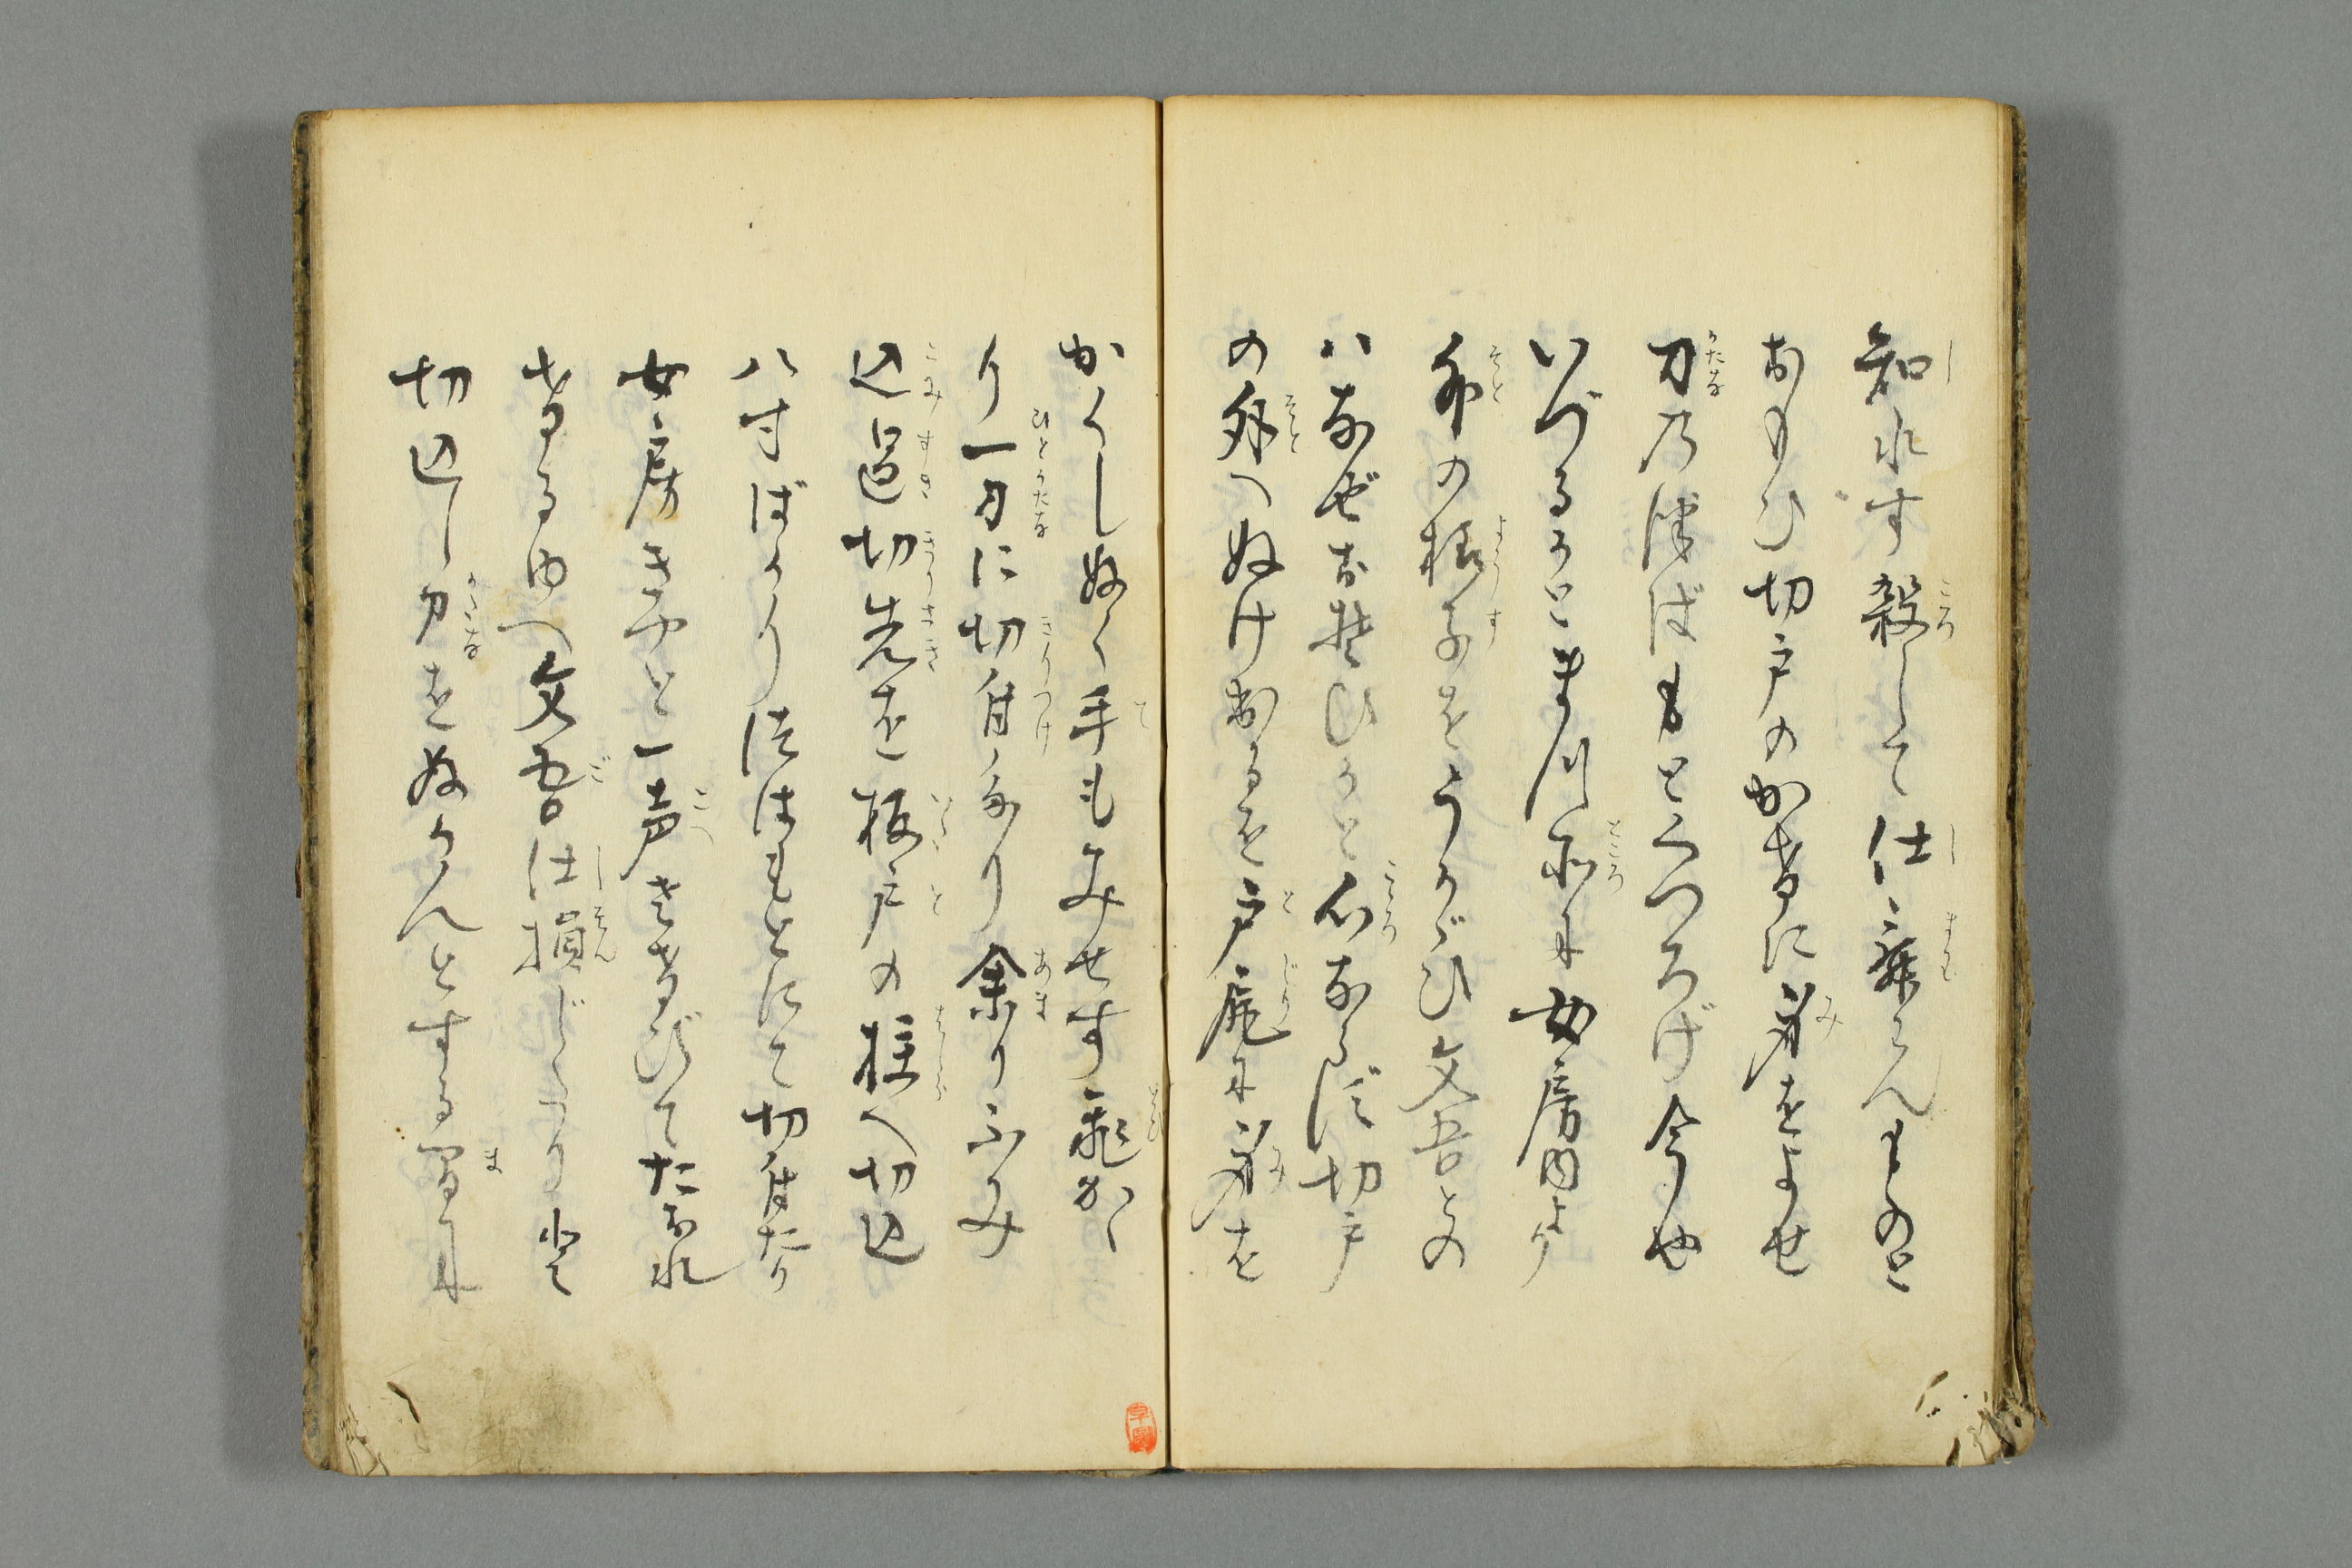 知れす殺して仕舞んものと
おもひ切戸のかげに身をよせ
刀乃つばもとくつろげ今や
いづるかとまつ所に女房内より
外の様子をうかゞひ文吾との
ハなぜおそひかと心ならず切戸
の外へぬけ出るを戸尻に身を
かくしぬく手もみせす飛かゝ
り一刀に切付たり余りふみ
込過切先を板戸の柱へ切込
八寸ばかりつばもとにて切付たり
女房きやと一声さけびてたおれ
けるゆへ文吾仕損じたりと
切込し刀をぬかんとする間に